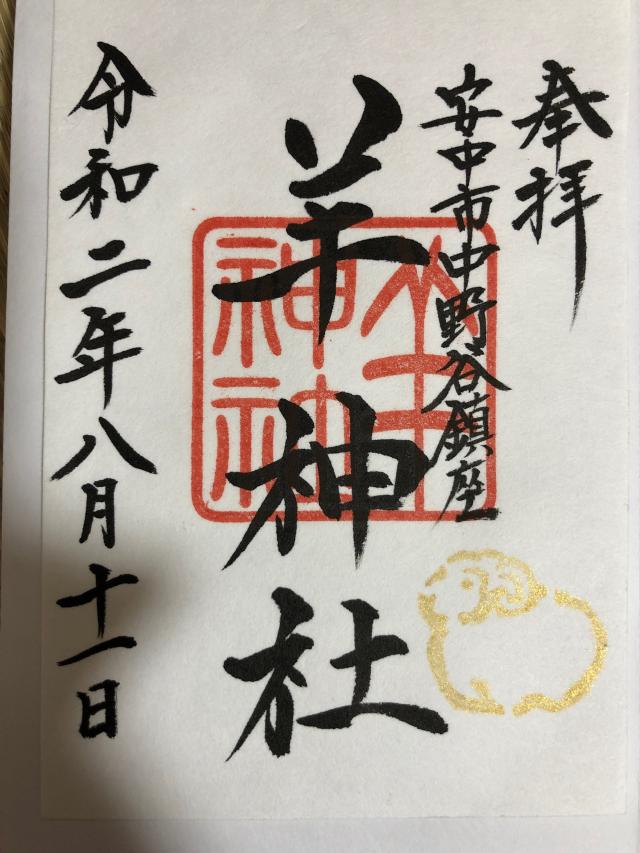 奉拝
安中市中野谷鎮座
羊神社
令和二年八月十一日